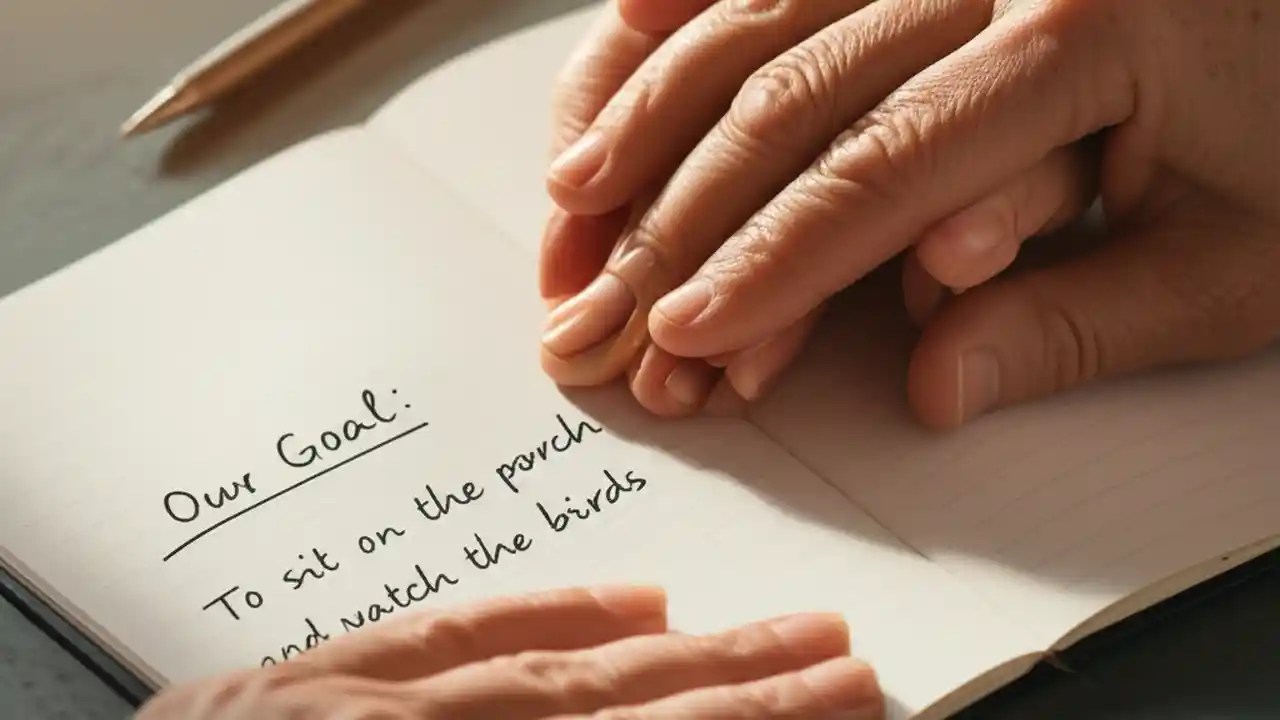 Our Goal:
To sit on the porch
and watch the birds